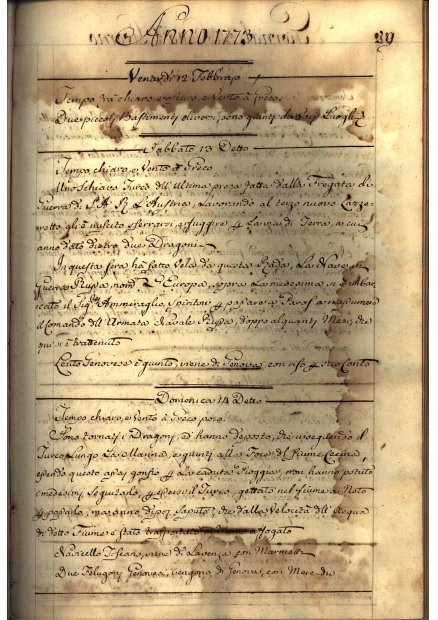 Anno 1773
39
Venerdì 12 Febbrajo
Tempo chiaro, e Vento à Greco
Due piccoli Bastimenti diversi, sono giunti da Luoghi
Sabbato 13 Detto
Tempo chiaro, e Vento à Greco
Uno Schiavo Turco dell'Ultima presa fatta dalla Fregata di
Guerra di S. A. R. L'Austria, Lavorando al terzo nuovo Lazze
retto, gli è riuscito sferrarsi, e fuggire Terra, a cui
anno dato dietro due Dragoni
In questa sera ha fatto Vela da questa Rada, La Nave in
Guerra Russa, nom.ta L'Europa, sopra La medesima si è imbar
cato il Sig.r Ammiraglio Spiritow passare a Paros a riassumere
il Comando dell'Armata Navale Russa, doppo alquanti Mesi, che
qui si è trattenuto
Leuto Genovese è giunto, viene di Genova, con
Domenica 14 Detto
Tempo chiaro, e Vento à Greco poco
Sono tornati i Dragoni, ed hanno deposto, che inseguendo il
Turco Lungo La Marina, e giunti alla Foce del fiume Cecina,
essendo questo assai gonfio La caduta Pioggia, non hanno potuto
i medesimi seguitarlo, essersi il Turco, gettato nel fiume à Noto
passarlo, ma anno dipoi saputo, che dalla Velocità dell'Acqua
di detto Fiume è stato trasportato affogato
Navicello Toscano, viene di Lavenza, con Marmo
Due Felugoni Genovesi, vengono di Genova, con Merci